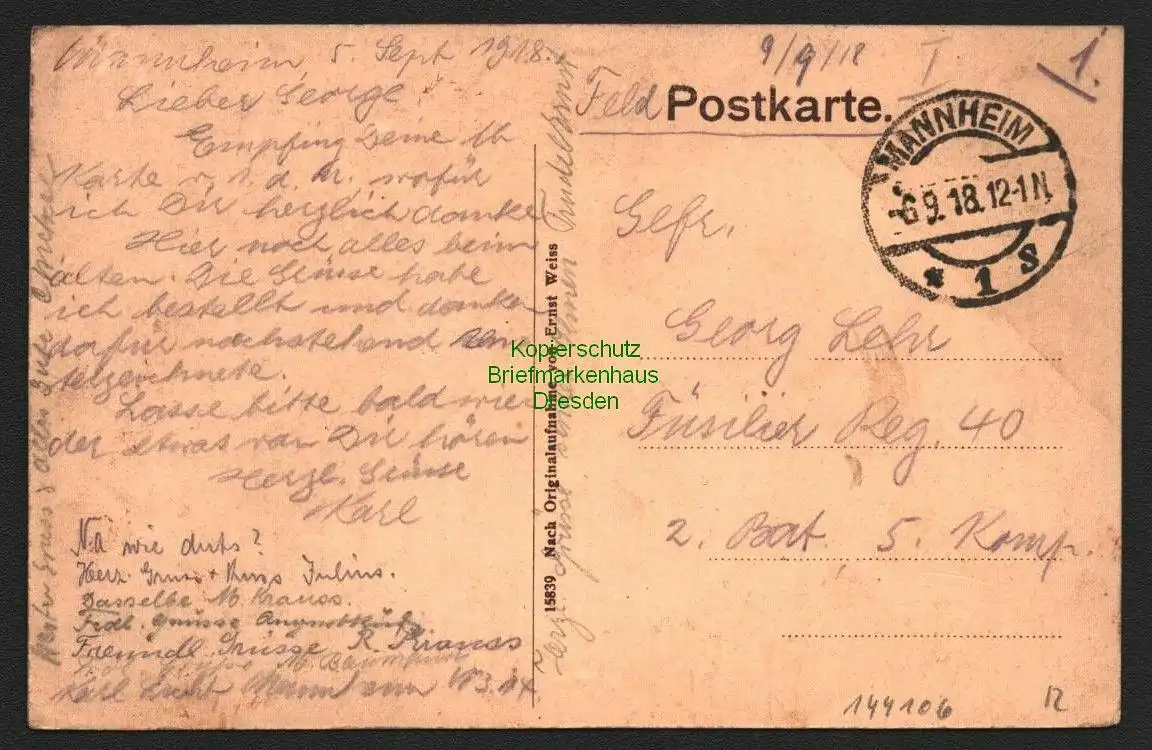 Mannheim, 5. Sept 1918.
Lieber George!
Empfing Deine lb
Karte v. 1. d. M. wofür
ich Dir herzlich danke
Hier noch alles beim
alten. Die Grüsse habe
ich bestellt und danken
dafür nachstehend
telzeichnete.
Lasse bitte bald wie
der etwas von Dir hören
Herzl. Grüsse
Karl
Na wie duts?
Herz. Gruss + Kuss Julius.
Dasselbe M. Krauss.
Frdl. Grüsse
Freundl. Grüsse R. Krauss
M. Baumann
Karl
Gruss alles Gute
Herzl. Grüsse
15839 Nach Originalaufnahme von Ernst Weiss
9/9/18
I
1.
Feld Postkarte.
MANNHEIM
-6 9. 18. 12-1 N.
* 1 s
Gefr.
Georg Lehr
Füsilier Reg. 40
2. Bat. 5. Komp.
Kopierschutz
Briefmarkenhaus
Dresden
144106
12